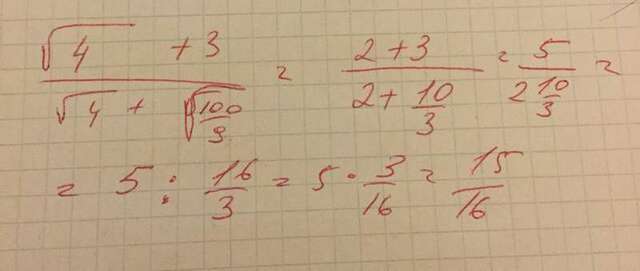 (√4 + 3)/(√4 + √(100/9)) = (2+3)/(2 + 10/3) = 5/(2 10/3) =
= 5 : 16/3 = 5 · 3/16 = 15/16